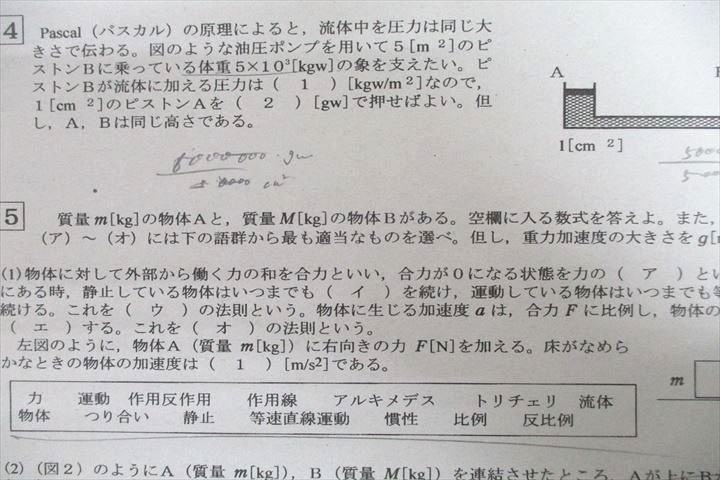 4 Pascal（パスカル）の原理によると，流体中を圧力は同じ大
きさで伝わる。図のような油圧ポンプを用いて5[m ²]のピ
ストンBに乗っている体重5×10³[kgw]の象を支えたい。ピ
ストンBが流体に加える圧力は（ 1 ）[kgw/m²]なので，
1[cm ²]のピストンAを（ 2 ）[gw]で押せばよい。但
し，A，Bは同じ高さである。
A
1[cm ²]
5 質量m[kg]の物体Aと，質量M[kg]の物体Bがある。空欄に入る数式を答えよ。また，
（ア）～（オ）には下の語群から最も適当なものを選べ。但し，重力加速度の大きさをg[
(1)物体に対して外部から働く力の和を合力といい，合力が0になる状態を力の（ ア ）とい
にある時，静止している物体はいつまでも（ イ ）を続け，運動している物体はいつまでも等
続ける。これを（ ウ ）の法則という。物体に生じる加速度aは，合力Fに比例し，物体の
（ エ ）する。これを（ オ ）の法則という。
左図のように，物体A（質量 m[kg]）に右向きの力 F[N]を加える。床がなめら
かなときの物体の加速度は（ 1 ）[m/s²]である。
m
力 運動 作用反作用 作用線 アルキメデス トリチェリ 流体
物体 つり合い 静止 等速直線運動 慣性 比例 反比例
(2)（図2）のようにA（質量 m[kg]），B（質量 M[kg]）を連結させたところ，Aが上にB